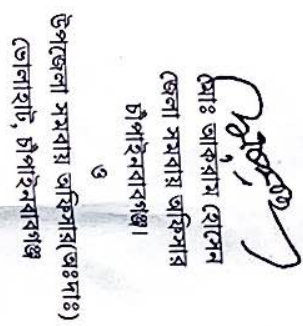 মোঃ আকরাম হোসেন
জেলা সমবায় অফিসার
চাঁপাইনবাবগঞ্জ।
ও
উপজেলা সমবায় অফিসার(অঃদাঃ)
ভোলাহাট, চাঁপাইনবাবগঞ্জ